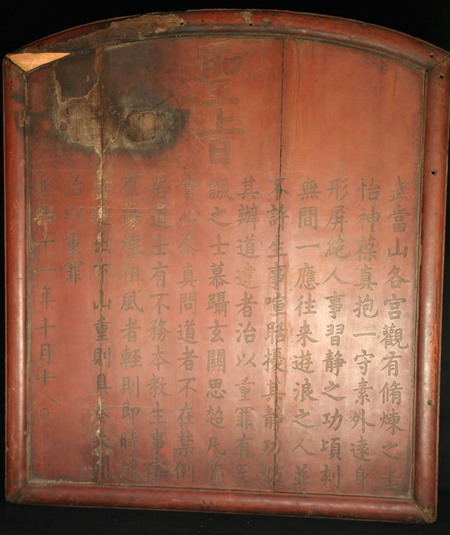 聖旨
武當山各宮觀有脩煉之士
怡神葆真抱一守素外遠身
形屏絕人事習靜之功頃刻
無間一應往來遊浪之人並
不許生事喧聒擾其靜功妨
其辦道違者治以重罪有至
誠之士慕躡玄關思超凡
實心來真問道者不在禁例
若道士有不務本教生事
羣
祖風者輕則即時
出下山重則具奏來
治以重罪
十一年十月十八日